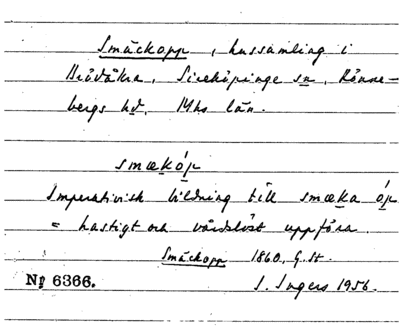 Smäckopp, hussamling i
Bidvåkra, Sireköpinge sn, Rönne-
bergs hd, Mhs län.
smækóp
Imperativisk bildning till smæka óp
= hastigt och vårdslöst uppföra.
Smäckopp 1860, G.St.
No 6366.
I. Ingers 1956.